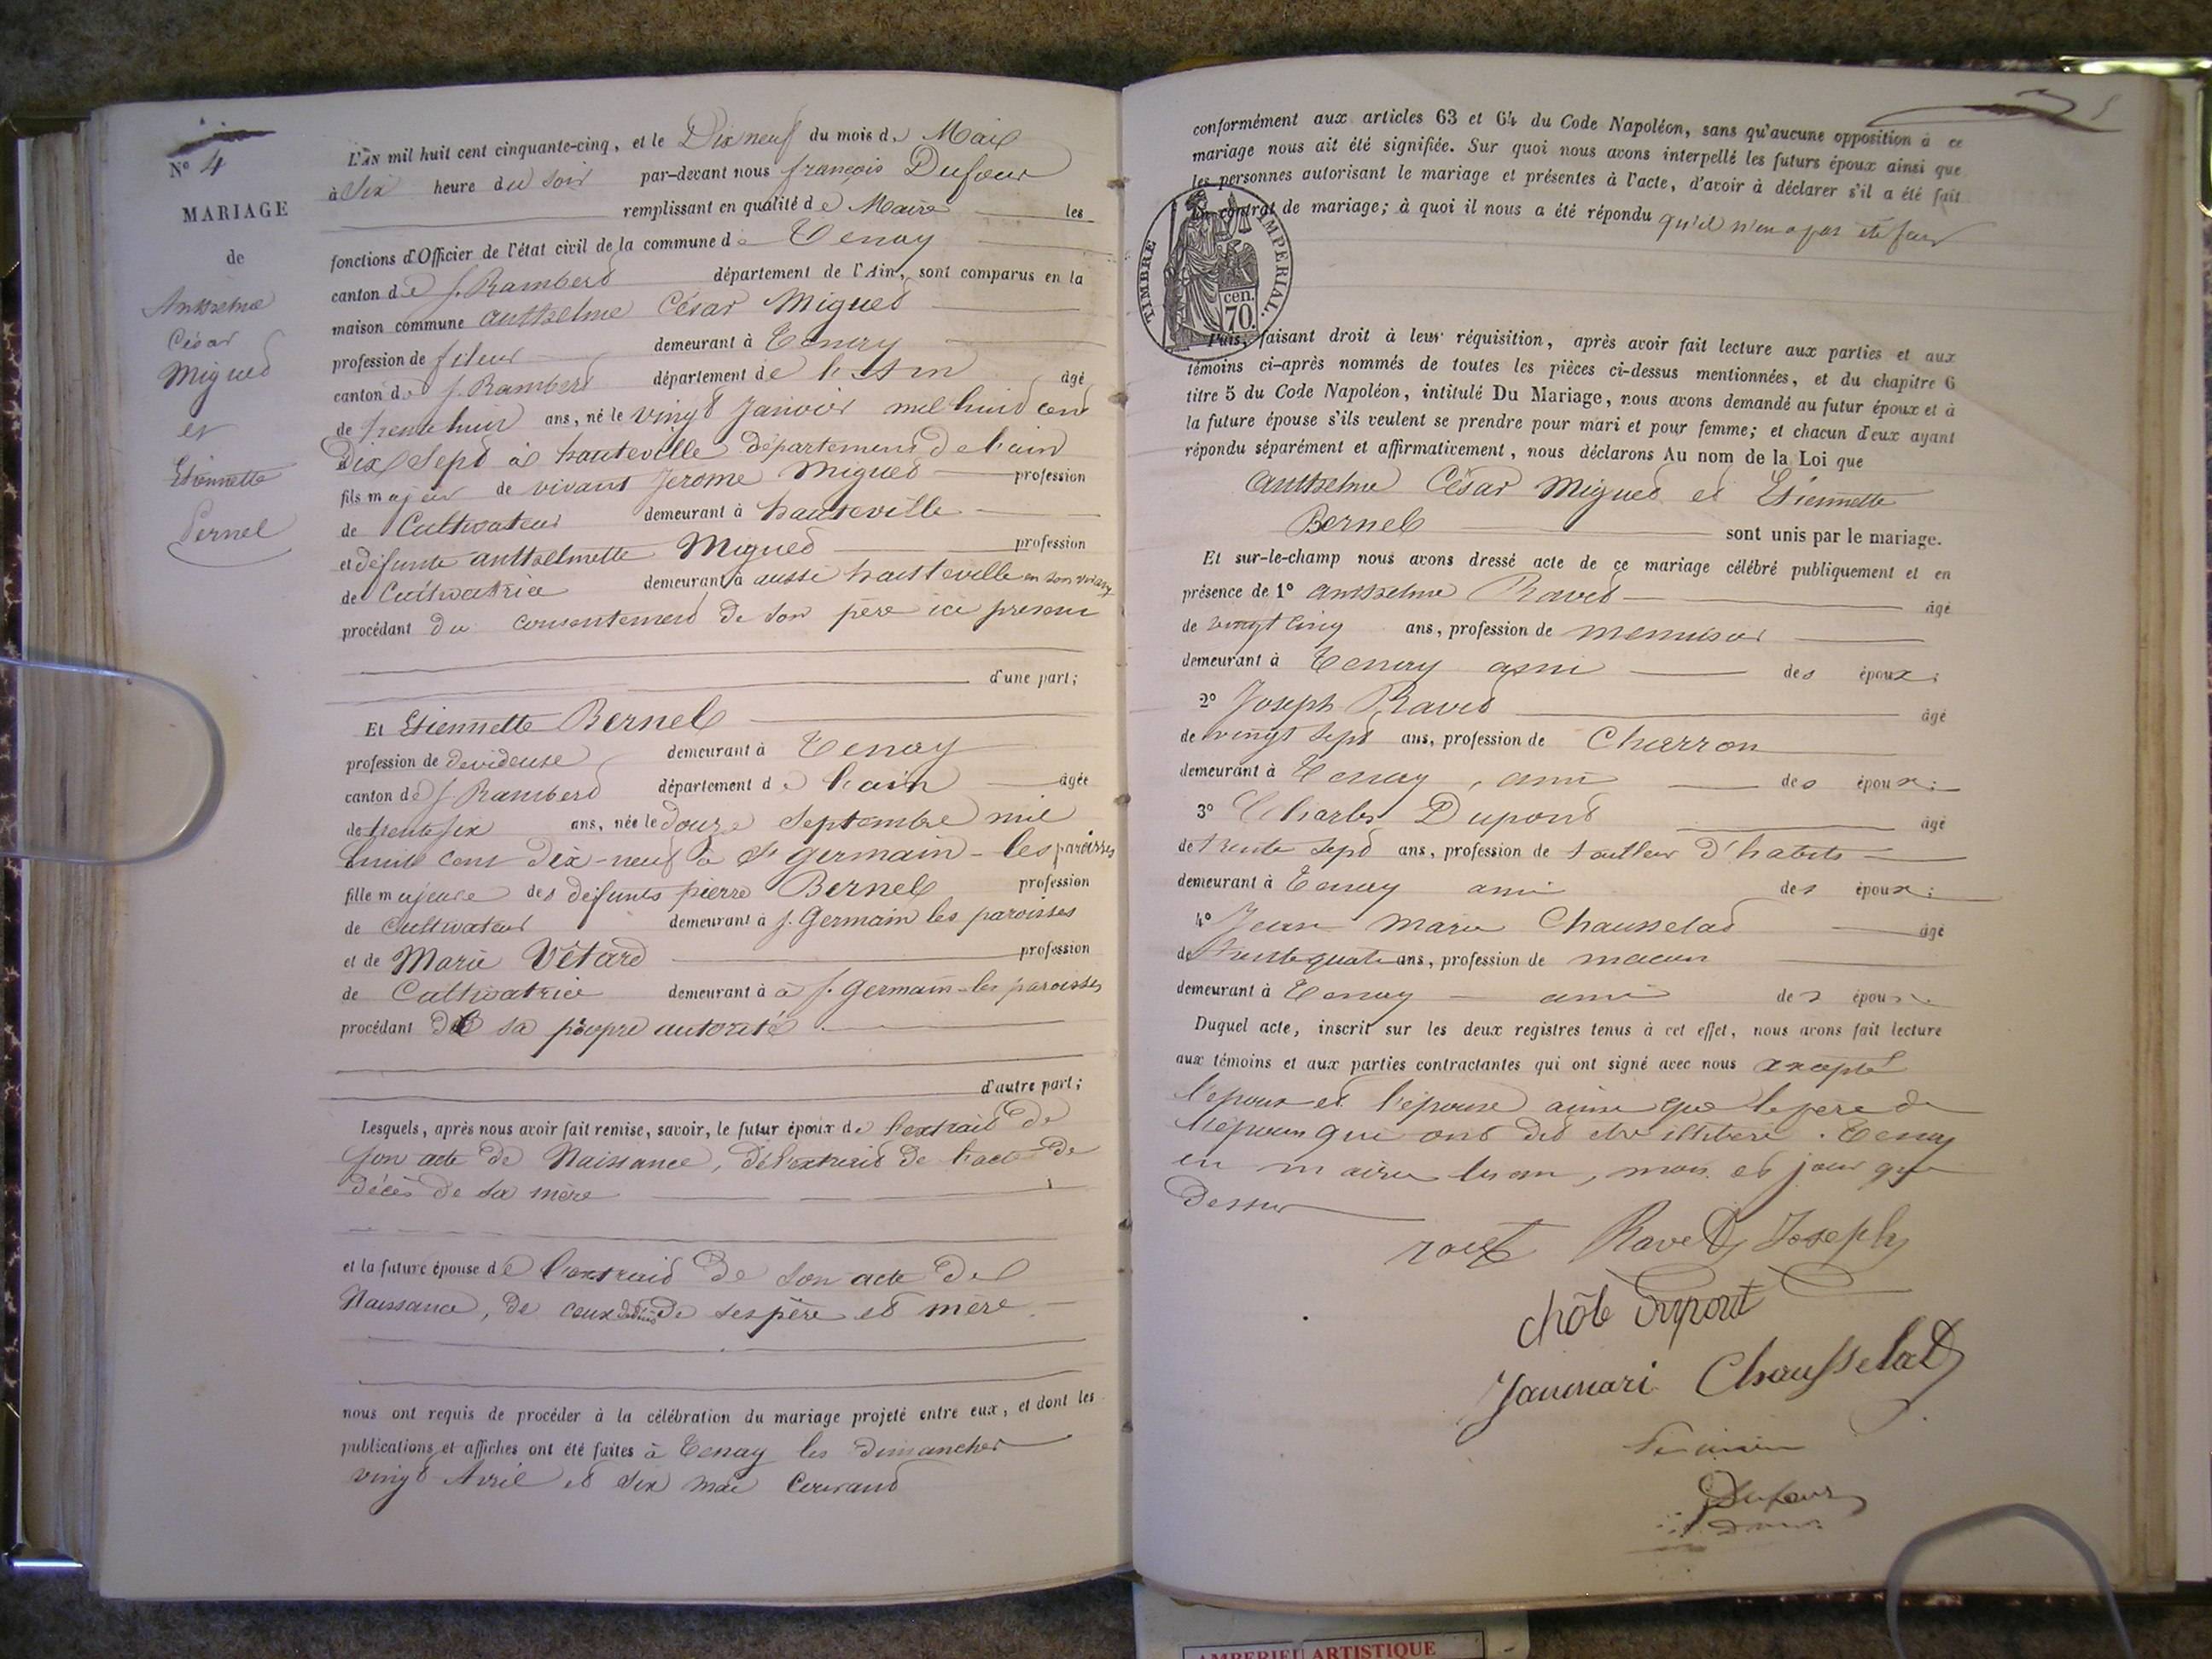 N° 4
MARIAGE
de
Anthelme
César
Migued
et
Etiennette
Bernel
L'AN mil huit cent cinquante-cinq, et le Dix neuf du mois de Mai
à Six heure du soir par-devant nous françois Dufour
remplissant en qualité de Maire les
fonctions d'Officier de l'état civil de la commune de Tenay
canton de S. Rambert département de l'Ain, sont comparus en la
maison commune anthelme César Migued
profession de fileur demeurant à Tenay
canton de S. Rambert département de l'Ain âgé
de trente huit ans, né le vingt Janvier mil huit cent
Dix Sept à hauteville département de l'ain
fils majeur de vivant Jerome Migued profession
de Cultivateur demeurant à hauteville
et défunte anthelmette Migued profession
de Cultivatrice demeurant à aussi hauteville en son vivant
procédant du consentement de son père ici présent
d'une part;
Et Etiennette Bernel
profession de devideuse demeurant à Tenay
canton de S. Rambert département de l'ain âgée
de trente six ans, née le douze Septembre mil
huit cent dix-neuf à St germain-les paroisses
fille majeure des défunts pierre Bernel profession
de Cultivateur demeurant à S. Germain les paroisses
et de Marie Vétard profession
de Cultivatrice demeurant à à S. Germain-les paroisses
procédant de sa propre autorité
d'autre part;
Lesquels, après nous avoir fait remise, savoir, le futur époux de l'extrait de
son acte de Naissance, de l'extrait de l'acte de
décès de sa mère
et la future épouse de l'extrait de son acte de
Naissance, de ceux de décès de ses père et mère
nous ont requis de procéder à la célébration du mariage projeté entre eux, et dont les
publications et affiches ont été faites à Tenay les dimanches
vingt Avril et six mai Courant
conformément aux articles 63 et 64 du Code Napoléon, sans qu'aucune opposition à ce
mariage nous ait été signifiée. Sur quoi nous avons interpellé les futurs époux ainsi que
les personnes autorisant le mariage et présentes à l'acte, d'avoir à déclarer s'il a été fait
un contrat de mariage; à quoi il nous a été répondu qu'il n'en a pas été fait
TIMBRE IMPERIAL.
cen.
70.
Puis, faisant droit à leur réquisition, après avoir fait lecture aux parties et aux
témoins ci-après nommés de toutes les pièces ci-dessus mentionnées, et du chapitre 6
titre 5 du Code Napoléon, intitulé Du Mariage, nous avons demandé au futur époux et à
la future épouse s'ils veulent se prendre pour mari et pour femme; et chacun d'eux ayant
répondu séparément et affirmativement, nous déclarons Au nom de la Loi que
anthelme César Migued et Etiennette
Bernel sont unis par le mariage.
Et sur-le-champ nous avons dressé acte de ce mariage célébré publiquement et en
présence de 1° anthelme Ravet âgé
de vingt cinq ans, profession de menuisier
demeurant à Tenay ami des époux;
2° Joseph Ravet âgé
de vingt sept ans, profession de Charron
demeurant à Tenay, ami des époux;
3° Charles Dupont âgé
de trente sept ans, profession de tailleur d'habits
demeurant à Tenay ami des époux;
4° Jean Marie Chausselat âgé
de trente quatre ans, profession de macon
demeurant à Tenay ami des époux.
Duquel acte, inscrit sur les deux registres tenus à cet effet, nous avons fait lecture
aux témoins et aux parties contractantes qui ont signé avec nous excepté
l'époux et l'épouse ainsi que le père de
l'époux qui ont dit être illitéré. Tenay
en mairie les an, mois et jour que
dessus
Ravet Joseph
chôle Dupont
Janmari Chausselat
Le maire
Dufour
AMBERIEU ARTISTIQUE